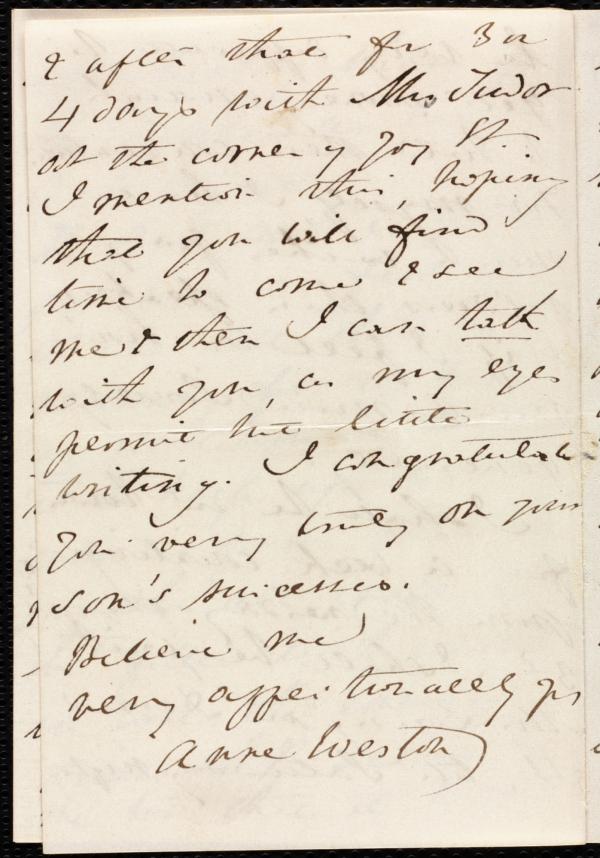 & after that for 3 or
4 days with Mrs Tudor
at the corner of Joy St
I mention this, hoping
that you will find
time to come & see
me & then I can talk
with you, as my eyes
permit but little
writing. I congratulate
you very truly on your
son's successes.
Believe me
very affectionately yrs
Anne Weston